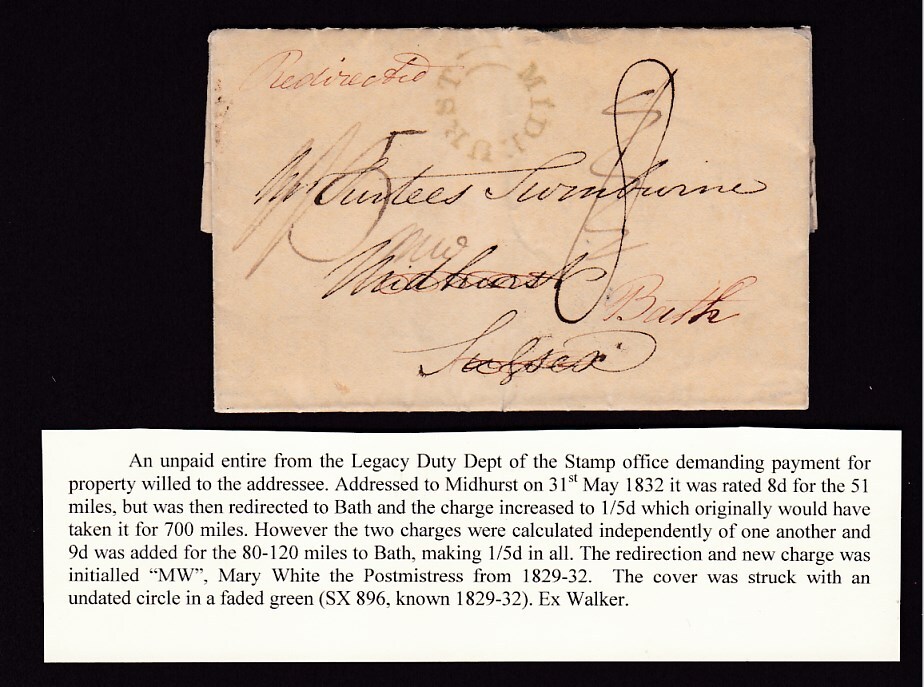 Redirected
MIDHURST
8
1/5
Mr Surtees Swinburne
MW
Midhurst
Bath
Sussex
An unpaid entire from the Legacy Duty Dept of the Stamp office demanding payment for
property willed to the addressee. Addressed to Midhurst on 31st May 1832 it was rated 8d for the 51
miles, but was then redirected to Bath and the charge increased to 1/5d which originally would have
taken it for 700 miles. However the two charges were calculated independently of one another and
9d was added for the 80-120 miles to Bath, making 1/5d in all. The redirection and new charge was
initialled “MW”, Mary White the Postmistress from 1829-32. The cover was struck with an
undated circle in a faded green (SX 896, known 1829-32). Ex Walker.